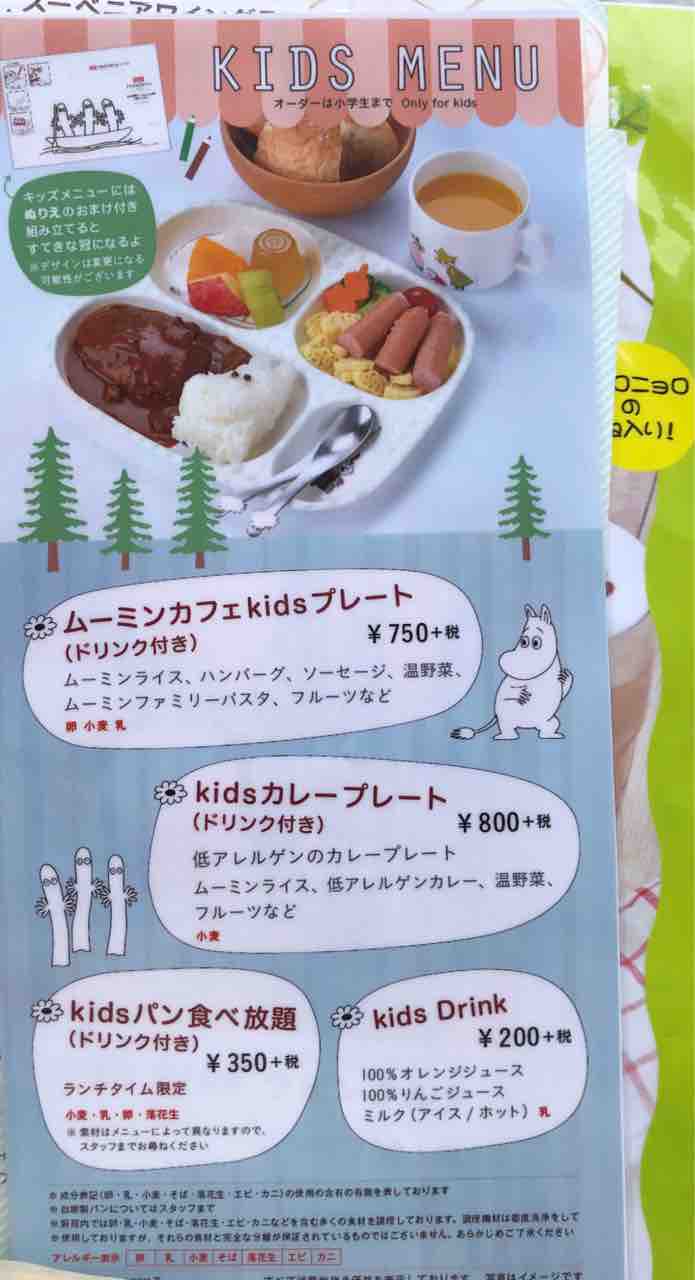 KIDS MENU
オーダーは小学生まで Only for kids
キッズメニューには
ぬりえのおまけ付き
組み立てると
すてきな冠になるよ
※デザインは変更になる
可能性がございます
ムーミンカフェkidsプレート
(ドリンク付き)
¥750+税
ムーミンライス、ハンバーグ、ソーセージ、温野菜、
ムーミンファミリーパスタ、フルーツなど
卵 小麦 乳
kidsカレープレート
(ドリンク付き)
¥800+税
低アレルゲンのカレープレート
ムーミンライス、低アレルゲンカレー、温野菜、
フルーツなど
小麦
kidsパン食べ放題
(ドリンク付き)
¥350+税
ランチタイム限定
小麦・乳・卵・落花生
※素材はメニューによって異なりますので、
スタッフまでお尋ねください
kids Drink
¥200+税
100%オレンジジュース
100%りんごジュース
ミルク(アイス/ホット) 乳
※成分表記(卵・乳・小麦・そば・落花生・エビ・カニ)の使用の含有の有無を表しております
※自家製パンについてはスタッフまで
※厨房内では卵・乳・小麦・そば・落花生・エビ・カニなどを含む多くの食材を調理しております。調理機材は都度洗浄をして
※使用しておりますが、それらの食材と完全な分離が保証されているものではございません。あらかじめご了承ください
アレルギー表示 卵 乳 小麦 そば 落花生 エビ カニ